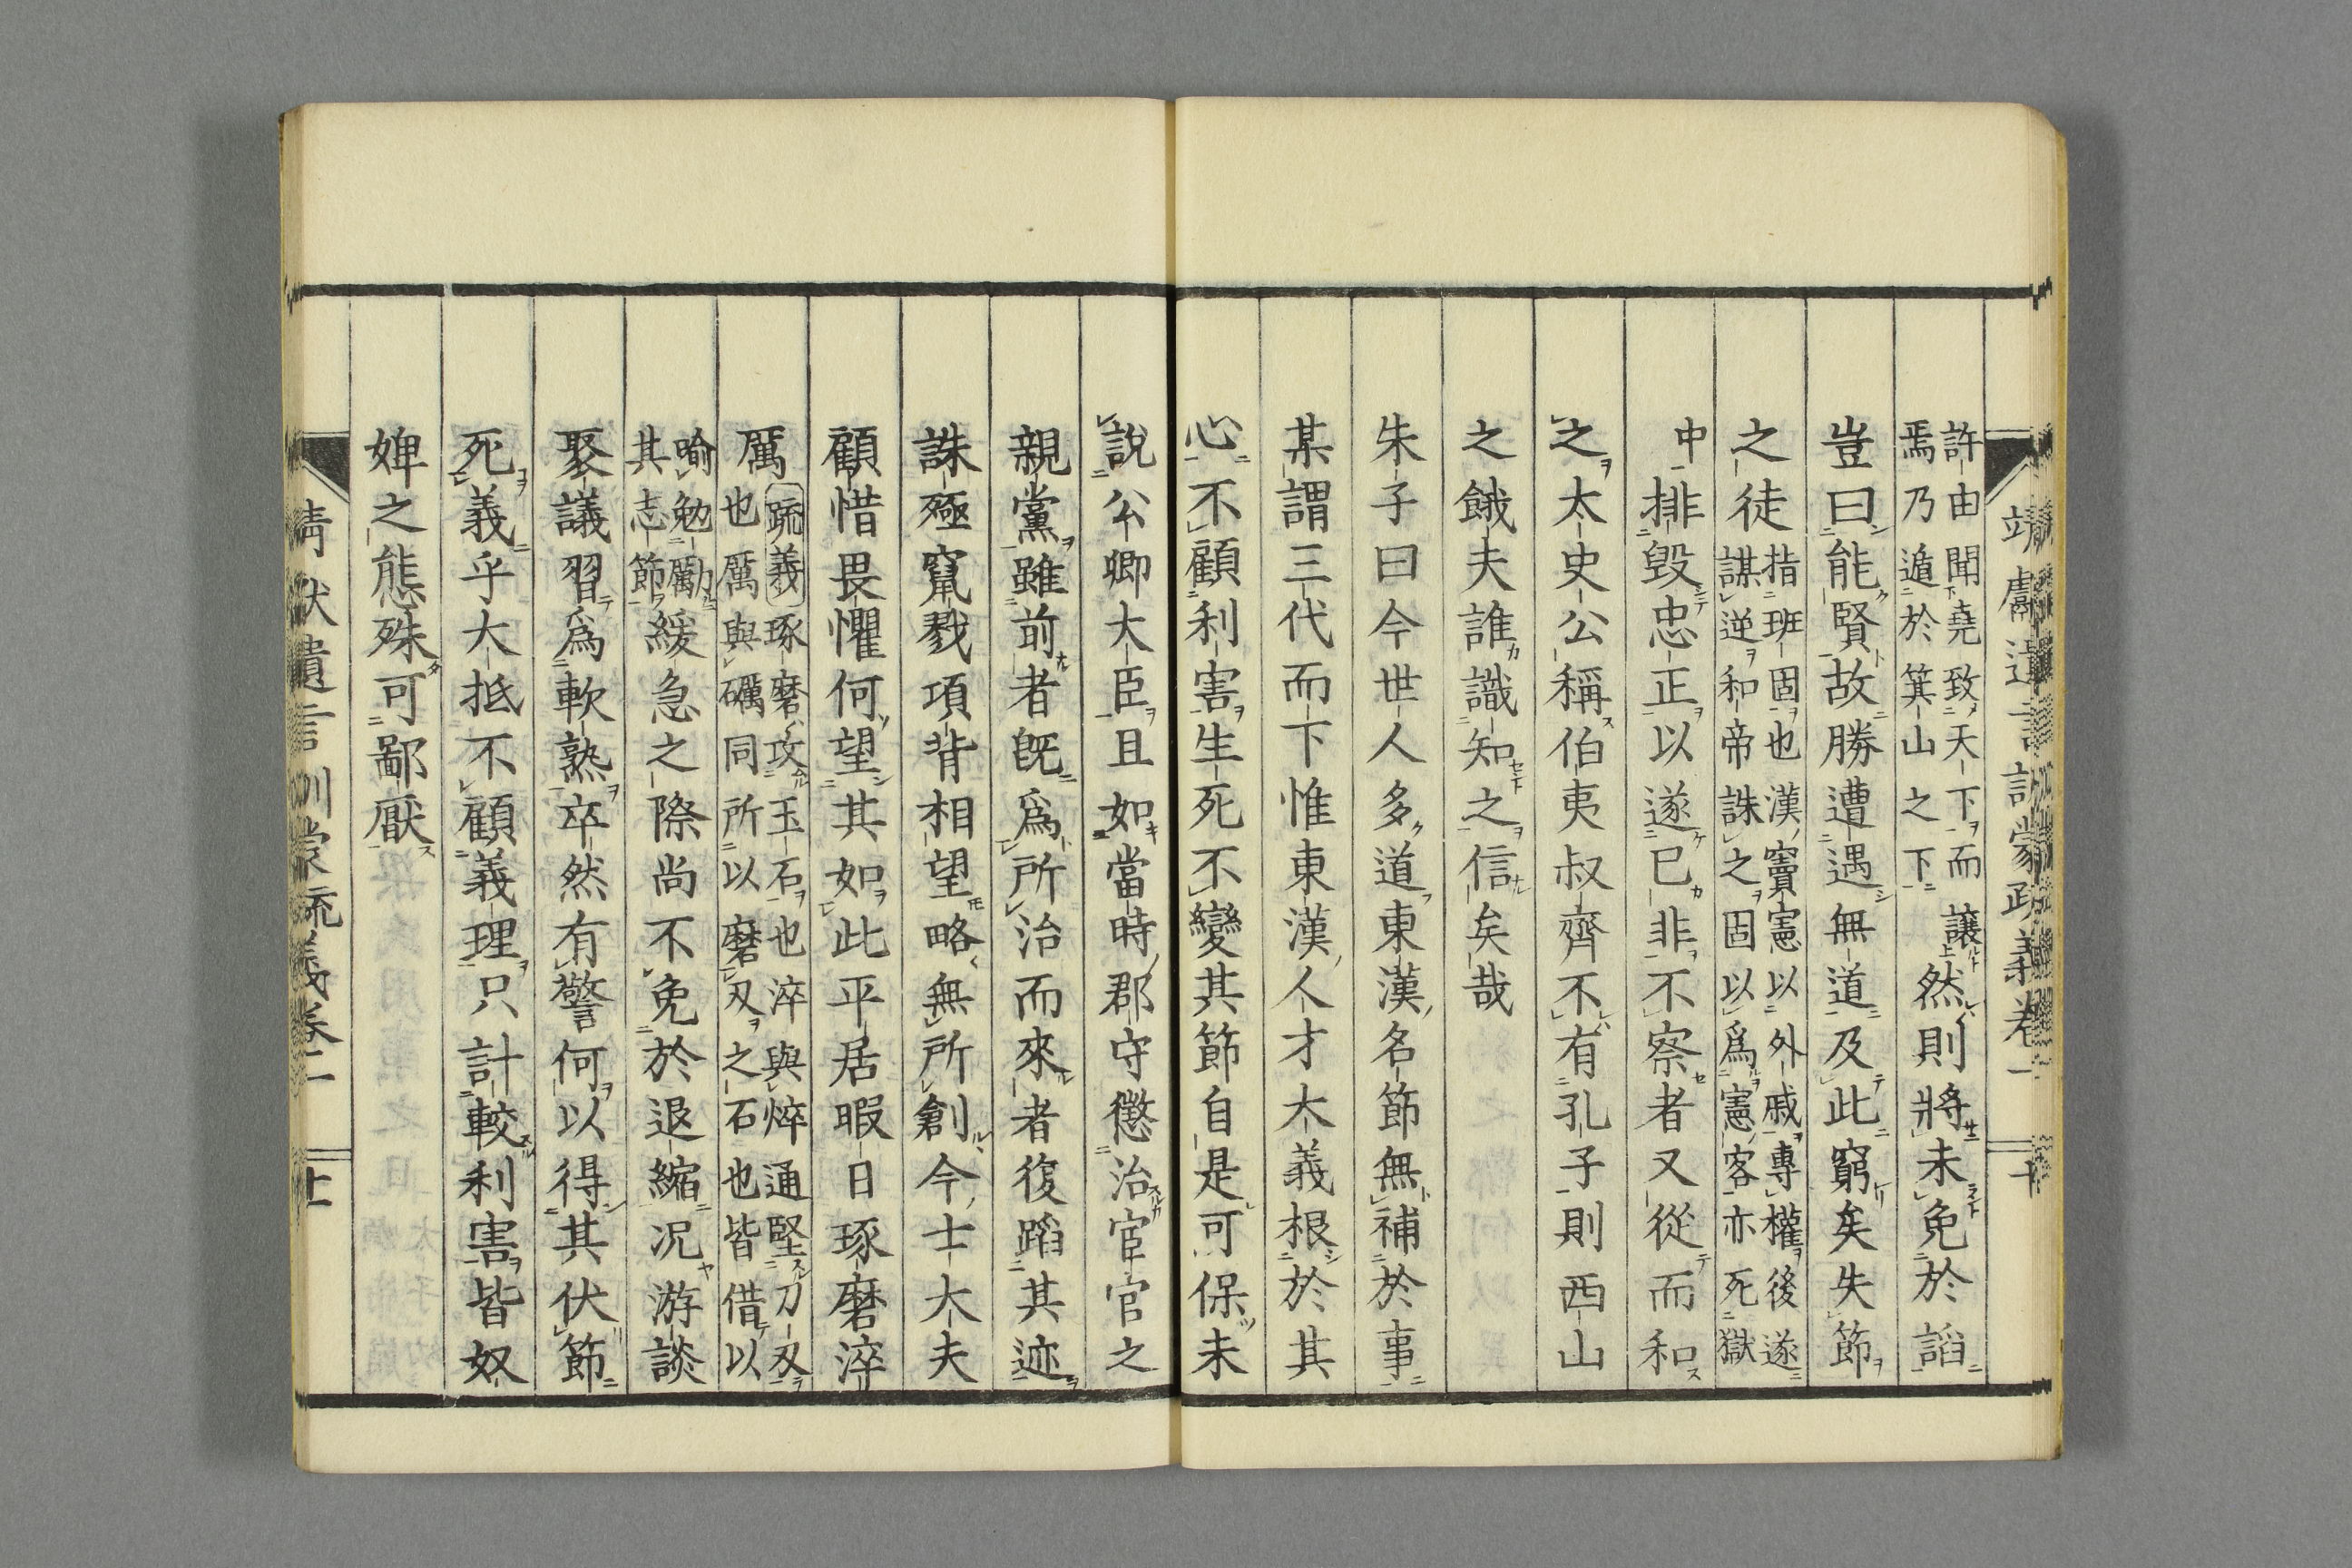 靖獻遺言訓蒙疏義卷二 十
許由聞堯致天下而讓
焉乃遁於箕山之下
然則將未免於謟
豈曰能賢故勝遭遇無道及此窮矣失節
之徒
指班固也漢竇憲以外戚專權後遂
謀逆和帝誅之固以爲憲客亦死獄
中
排毀忠正以遂己非不察者又從而和
之太史公稱伯夷叔齊不有孔子則西山
之餓夫誰識知之信矣哉
朱子曰今世人多道東漢名節無補於事
某謂三代而下惟東漢人才大義根於其
心不顧利害生死不變其節自是可保未
說公卿大臣且如當時郡守懲治宦官之
親黨雖前者既爲所治而來者復蹈其迹
誅殛竄戮項背相望略無所創今士大夫
顧惜畏懼何望其如此平居暇日琢磨淬
厲
疏義琢磨攻玉石也淬與焠通堅刀刃
也厲與礪同所以磨刃之石也皆借以
喻勉勵
其志節
緩急之際尚不免於退縮况游談
聚議習爲軟熟卒然有警何以得其伏節
死義乎大抵不顧義理只計較利害皆奴
婢之態殊可鄙厭
靖獻遺言訓蒙疏義卷二 十一